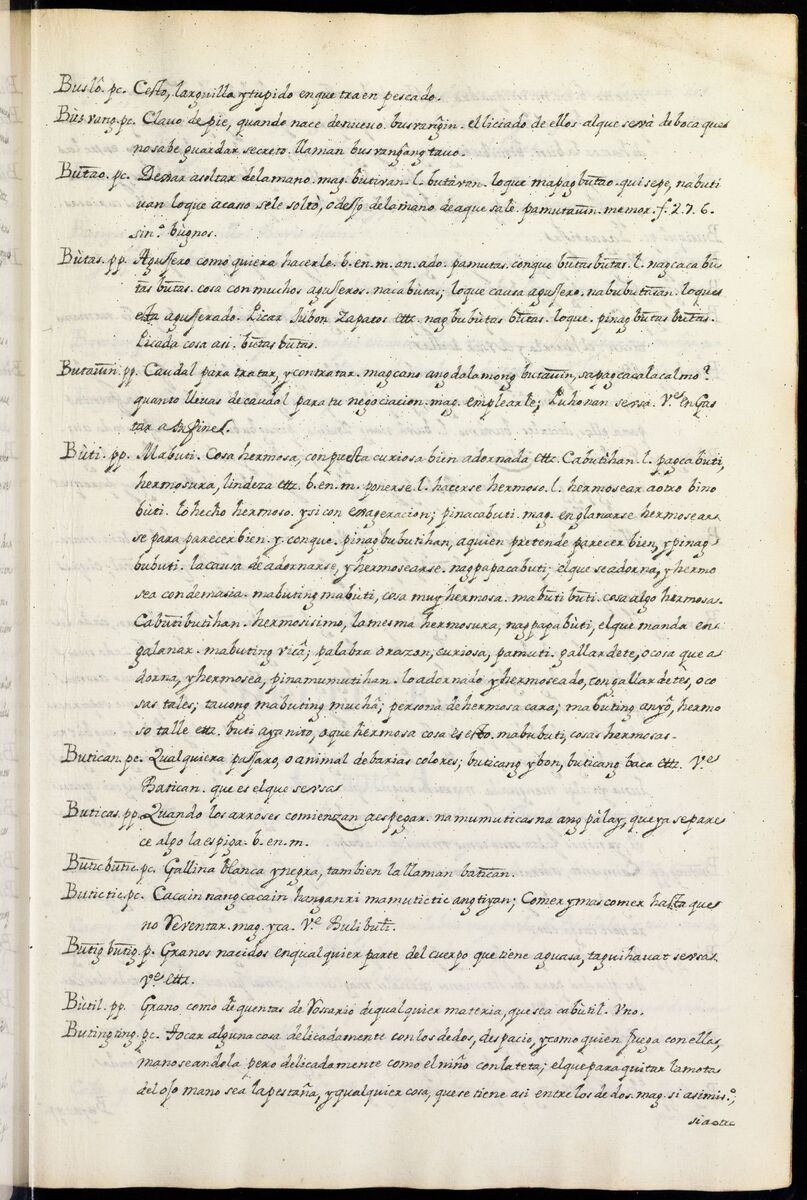 Buslô. pc. Cesto, larguillo y tupido en que traen pescado.
Bùs vang. pc. Clavo de pie, quando nace de nuevo. busvangin. el liciado de ellos. al que se và de boca que
no sabe guardar secreto. llaman busvangàng tavo.
Butao. pc. Dexar a soltar de la mano. mag. butivan. l. butavan. lo que mapag butao. qui sepe, nabuti
uan lo que acaso se le soltò, o desso de la mano. de aque sale pamutauin. memor. f. 276.
sin.º bugnos.
Bùtas. pp. Agussero como quiera hacerle. b. en. m. an. ado. pamutas. con que butasbutas. l. nagcaca bu
tas butas. cosa con muchos agusseros. nacabutas; lo que causa agussero. nabubutusan. lo que
esta agusserado. Picar Jubon Zapatos ettz. nag bubutas butas. lo que. pinag butas butas.
Picada cosa asi. butas butas.
Butauin. pp. Caudal para tratar, y contratar. magcano ang dalamong butauin, sa pagcacalacal mo?
quanto llevas de caudal para tu negociacion. mag. emplearle; Puhonan se usa. Vᵉ en Gas
tar a Infinef.
Bùti. pp. Mabuti. Cosa hermosa, conpuesta curiosa bien adornada ettz. Cabutihan. l. pagcabuti,
hermosura, lindeza ettz. b. en. m. ponerse. l. hacerse hermoso. l. hermosear a otro bino
buti. lo hecho hermoso. y si con exageracion; pinacabuti. mag. englanarse hermosear
se para parecer bien. y. conque. pinagbubutihan, a quien pretende parecer bien, y pinag
bubuti. la causa de adornarse, y hermosearse. nagpapacabuti; el que se adorna, y hermo
sea con demasia. mabuting mabùti, cosa muy hermosa. mabuti buti. cosa algo hermosa.
Cabutibutihan. hermosisimo, la mesma hermosura, nagpapabùti, el que manda en
galanar. mabuting vicâ; palabra o razon, curiosa, pamuti. gallardete, o cosa que a
dorna, y hermosea, pinamumutihan. lo adornado y hermoseado, con gallardetes, o co
sas tales; tavong mabuting muchâ; persona de hermosa cara; mabuting anyô, hermo
so talle ettz. buti aya nito, o que hermosa cosa es esto. mabubuti, cosas hermosas.
Butican. pc. Qualquiera passaro, o animal de barias colores; buticang ybon, buticang baca ettz. Vᵉ
Batican. que es el que se usa
Buticas. pp. Quando los arroses comienzan a espegar. namumuticas na ang pàlay, que ya se pare
ce algo la espiga. b. en. m.
Buticbutic. pc. Gallina blanca y negra, tambien la llaman batican.
Butictic. pc. Cacain nang cacain hanganri mamutictic ang tiyan; Comer y mas comer hasta que
no Reventar. mag. yca. Vᵉ Bulibuti.
Butig butig. p. Granos nacidos en qualquier parte del cuerpo que tiene aguasa, taguihavat se usa.
Vᵉ ettz.
Bùtil. pp. Grano como de quentas de Rosario de qualquier materia, que sea cabùtil. Vno.
Butingting. pc. Tocar alguna cosa delicadamente con los dedos, despacio, y como quien Juega con ellas,
manoseandola pero delicadamente como el niño con la teta; el que para quitar la motas
del ojo mano sea la pestaña, y qualquier cosa, que se tiene asi entre los dedos. mag. si asimis.º;
si a otro